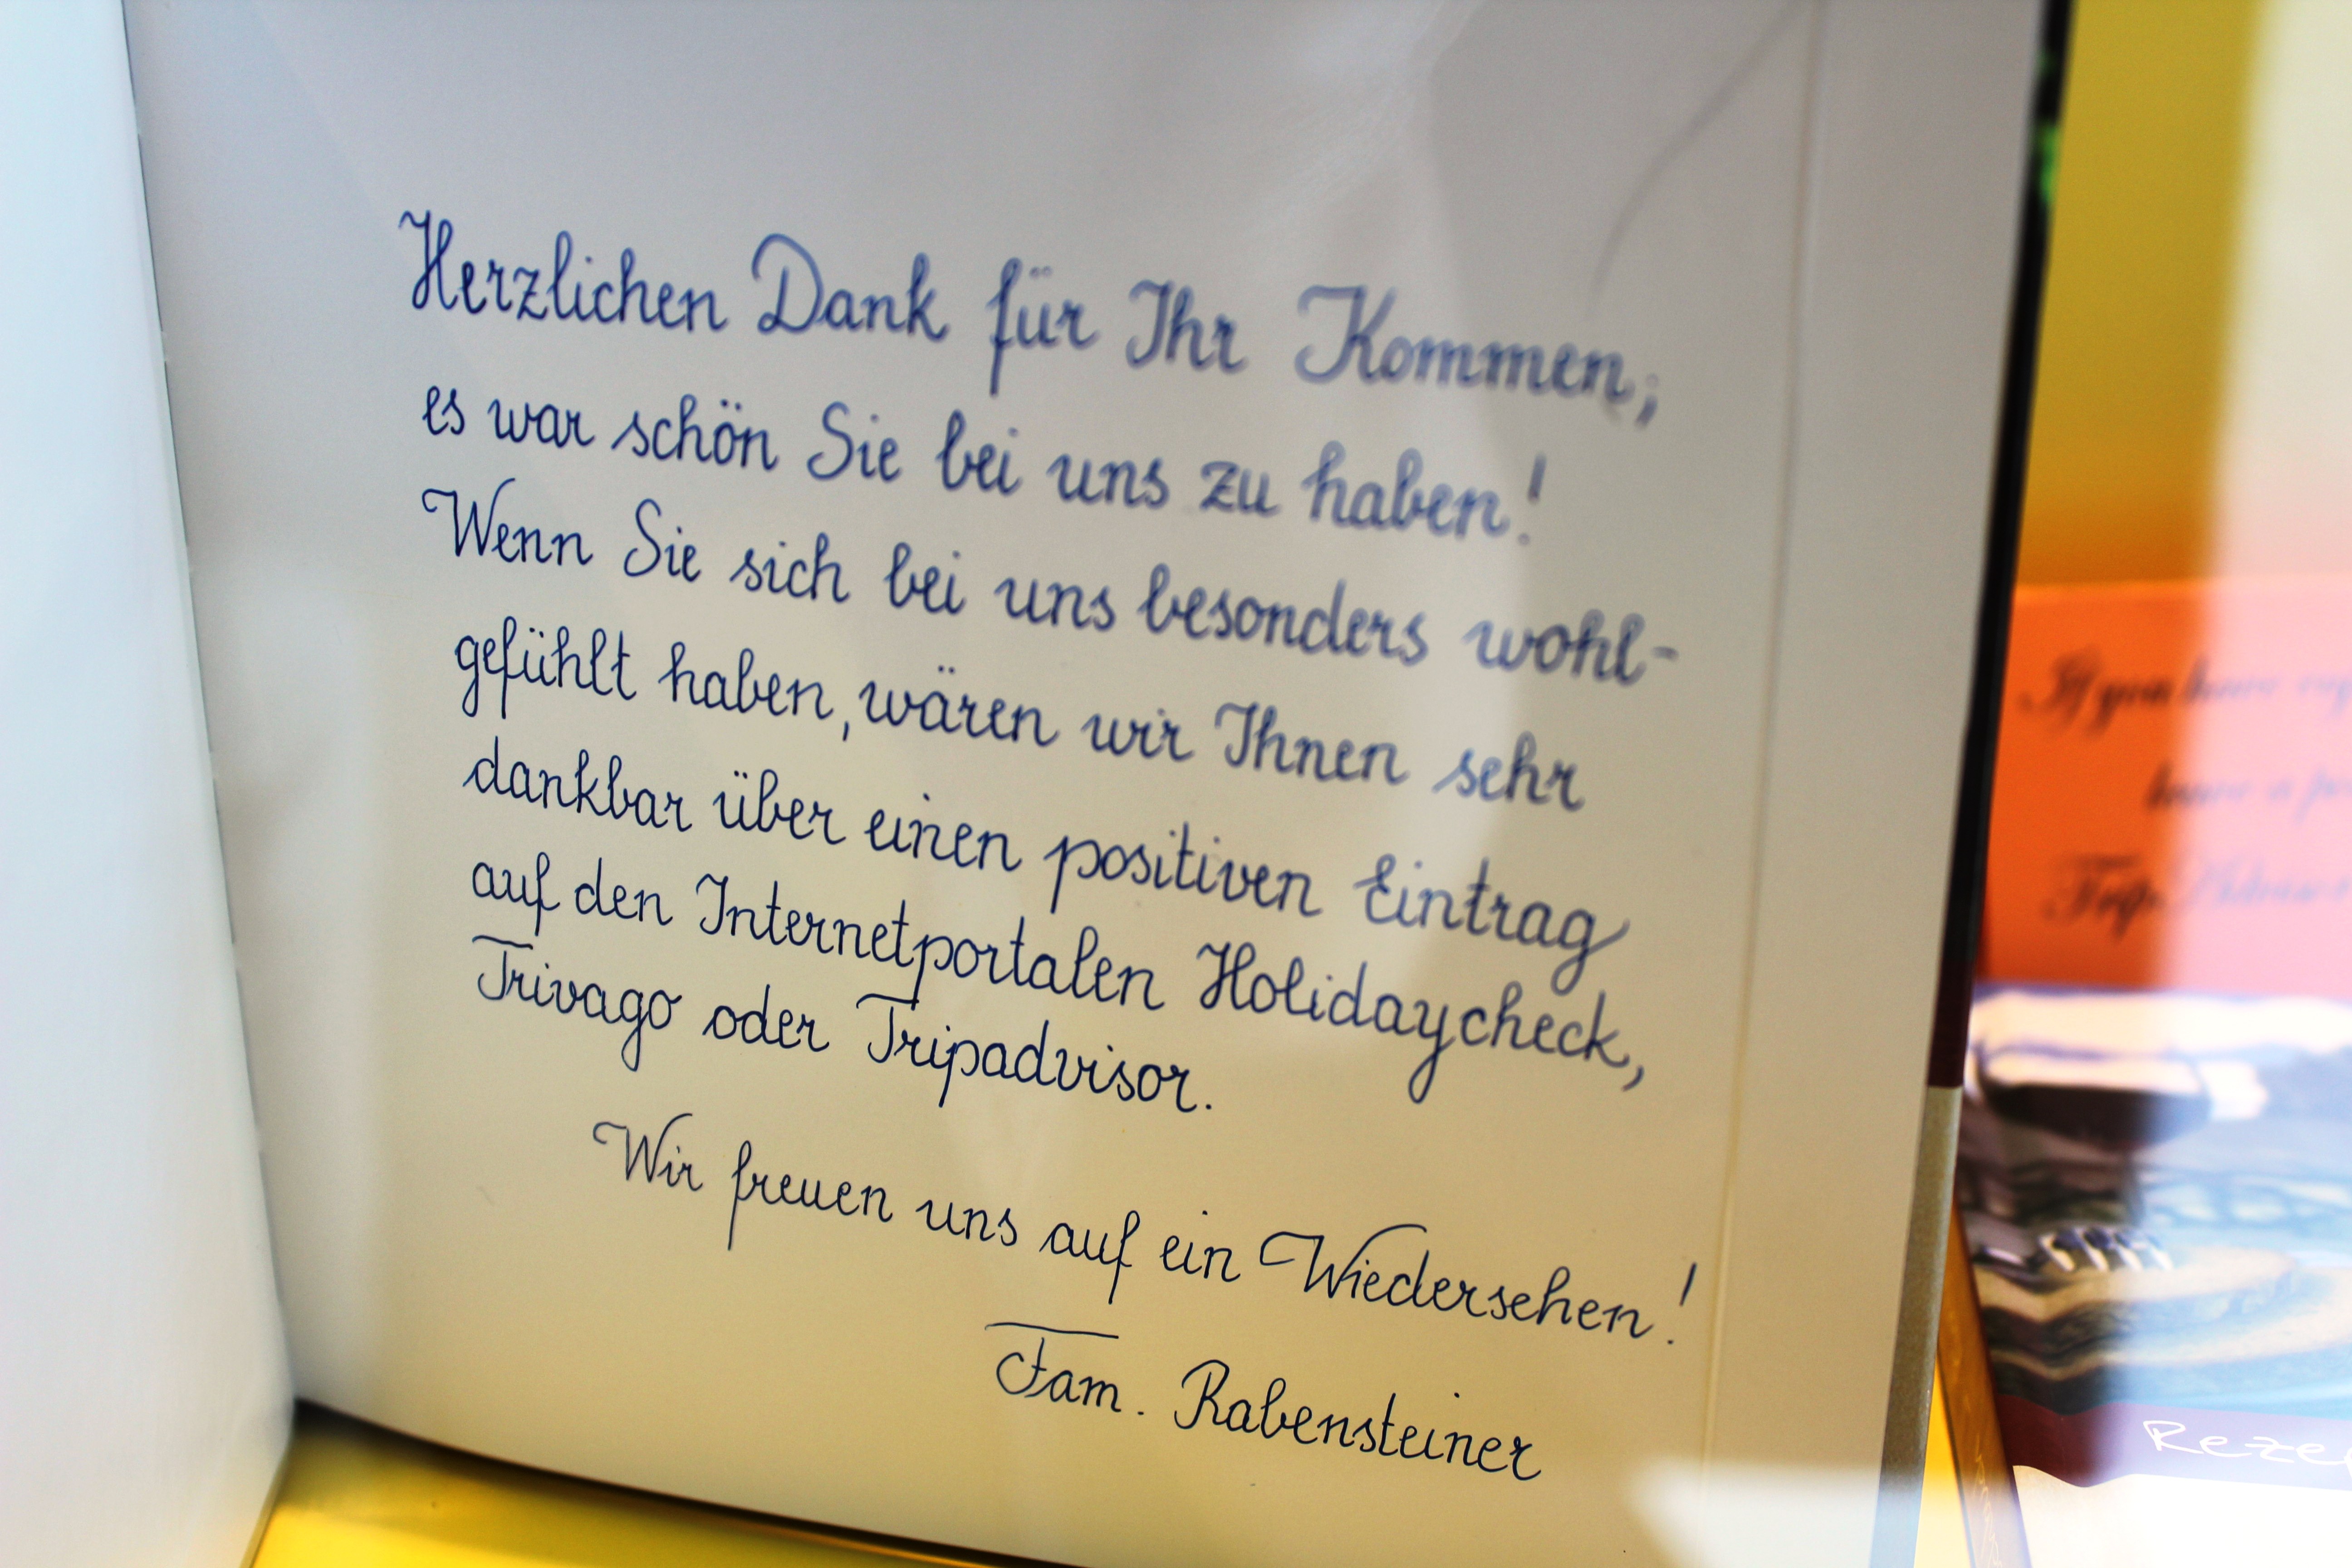 Herzlichen Dank für Ihr Kommen,
es war schön Sie bei uns zu haben!
Wenn Sie sich bei uns besonders wohl-
gefühlt haben, wären wir Ihnen sehr
dankbar über einen positiven Eintrag
auf den Internetportalen Holidaycheck,
Trivago oder Tripadvisor.
Wir freuen uns auf ein Wiedersehen!
Fam. Rabensteiner
If you have
have a